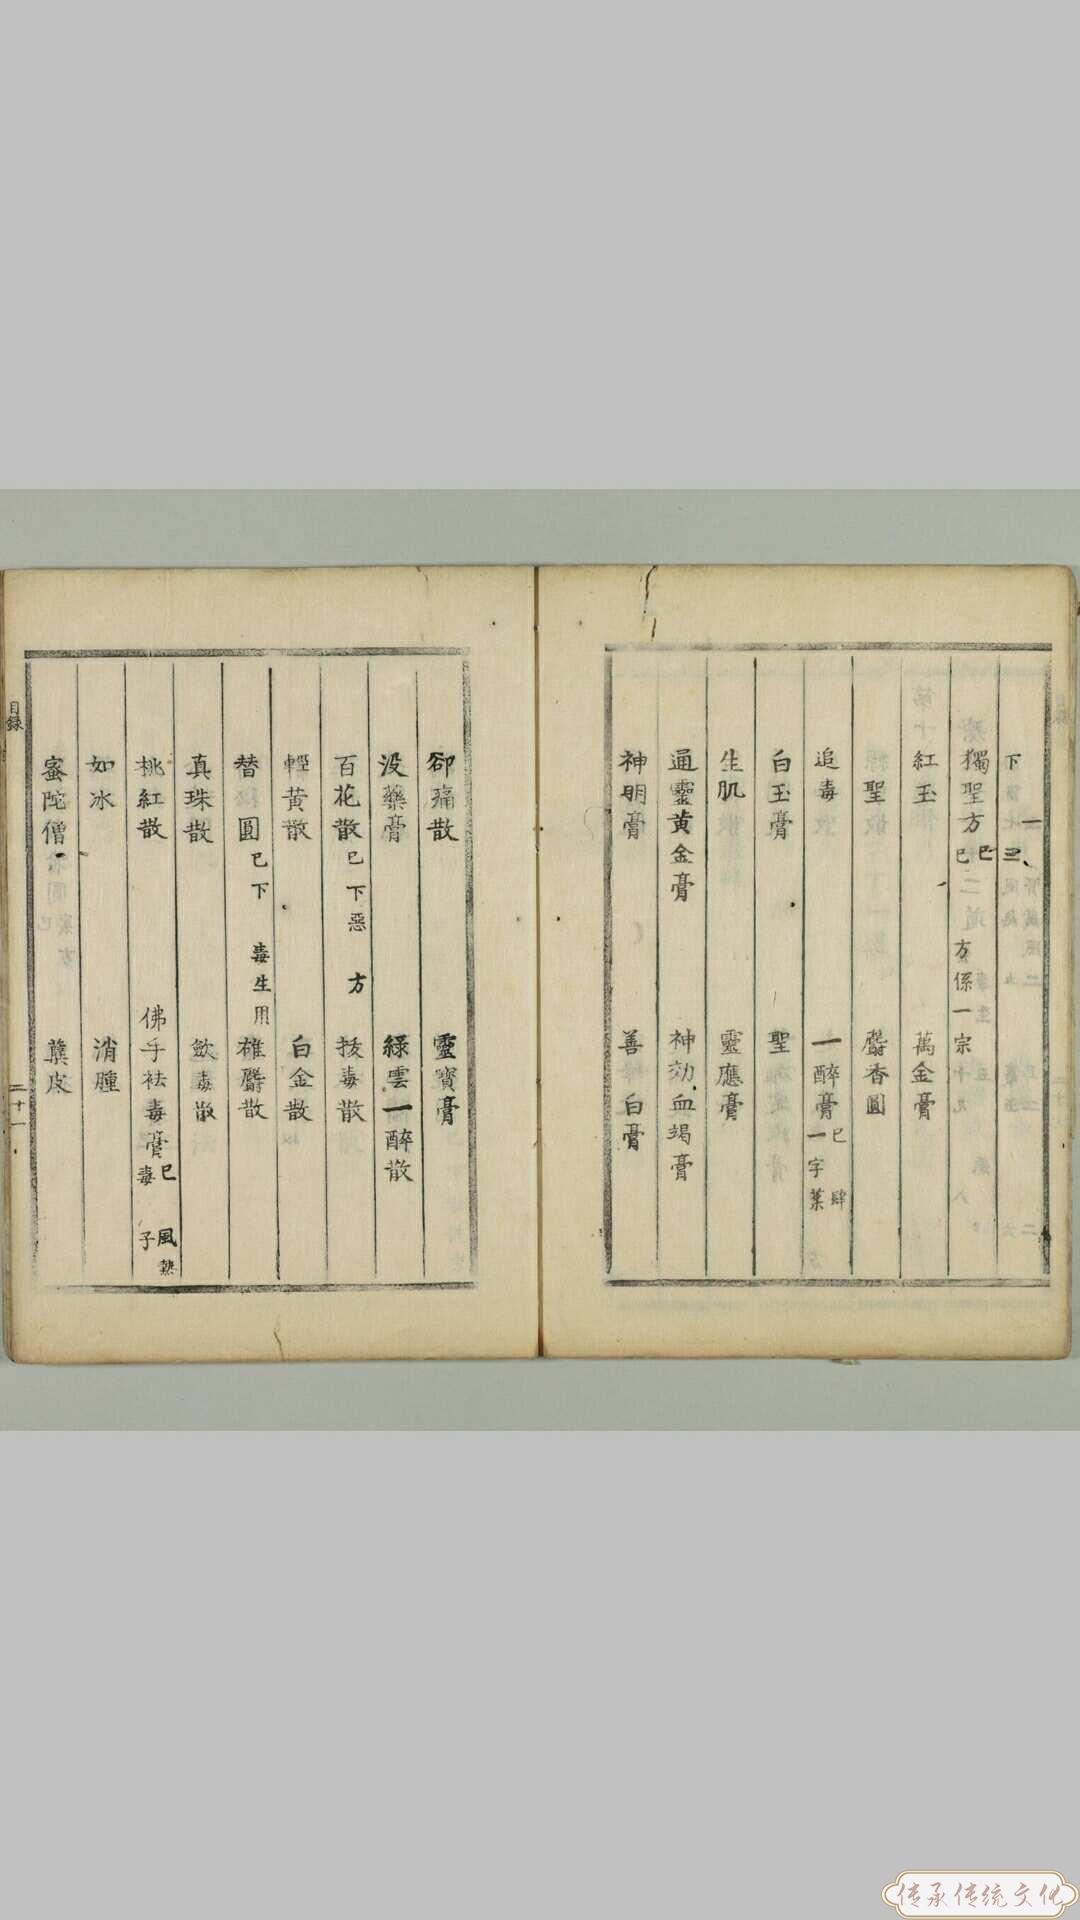 下
獨聖方已已 方係一宗十九
紅玉 萬金膏
聖 麝香圓
追毒 一醉膏已一字葉
白玉膏 聖
生肌 靈應膏
通靈黄金膏 神効血竭膏
神明膏 善白膏
卻痛散 靈寳膏
没藥膏 緑雲一醉散
百花散已下惡 方 拔毒散
輕黄散 白金散
替圓已下 毒生用 雄麝散
真珠散 斂毒散
桃紅散 佛手袪毒膏已 風熱毒 子
如冰 消腫
蜜陀僧 蘗皮
目錄
二十一
传承传统文化